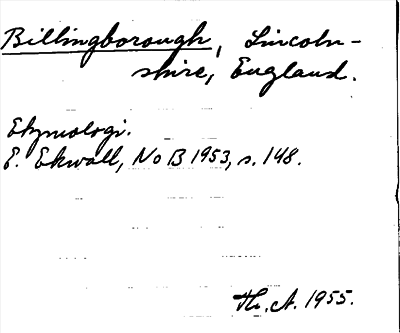 Billingborough, Lincoln-
shire, England.
Etymologi.
E. Ekwall, NoB 1953, s. 148.
Th. A. 1955.